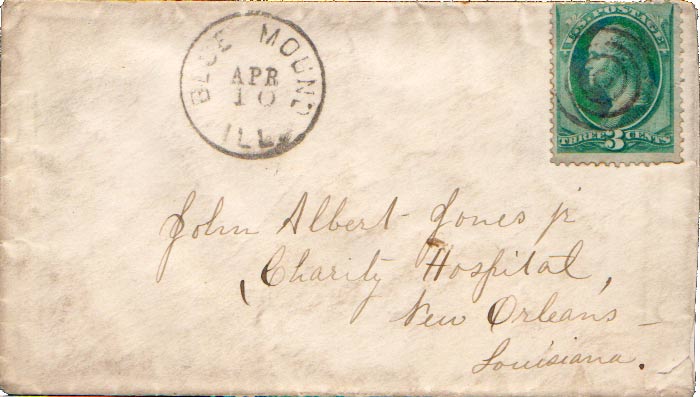 BLUE MOUND
APR
10
ILL.
U.S. POSTAGE
THREE 3 CENTS
John Albert Jones jr
Charity Hospital,
New Orleans –
Louisiana.